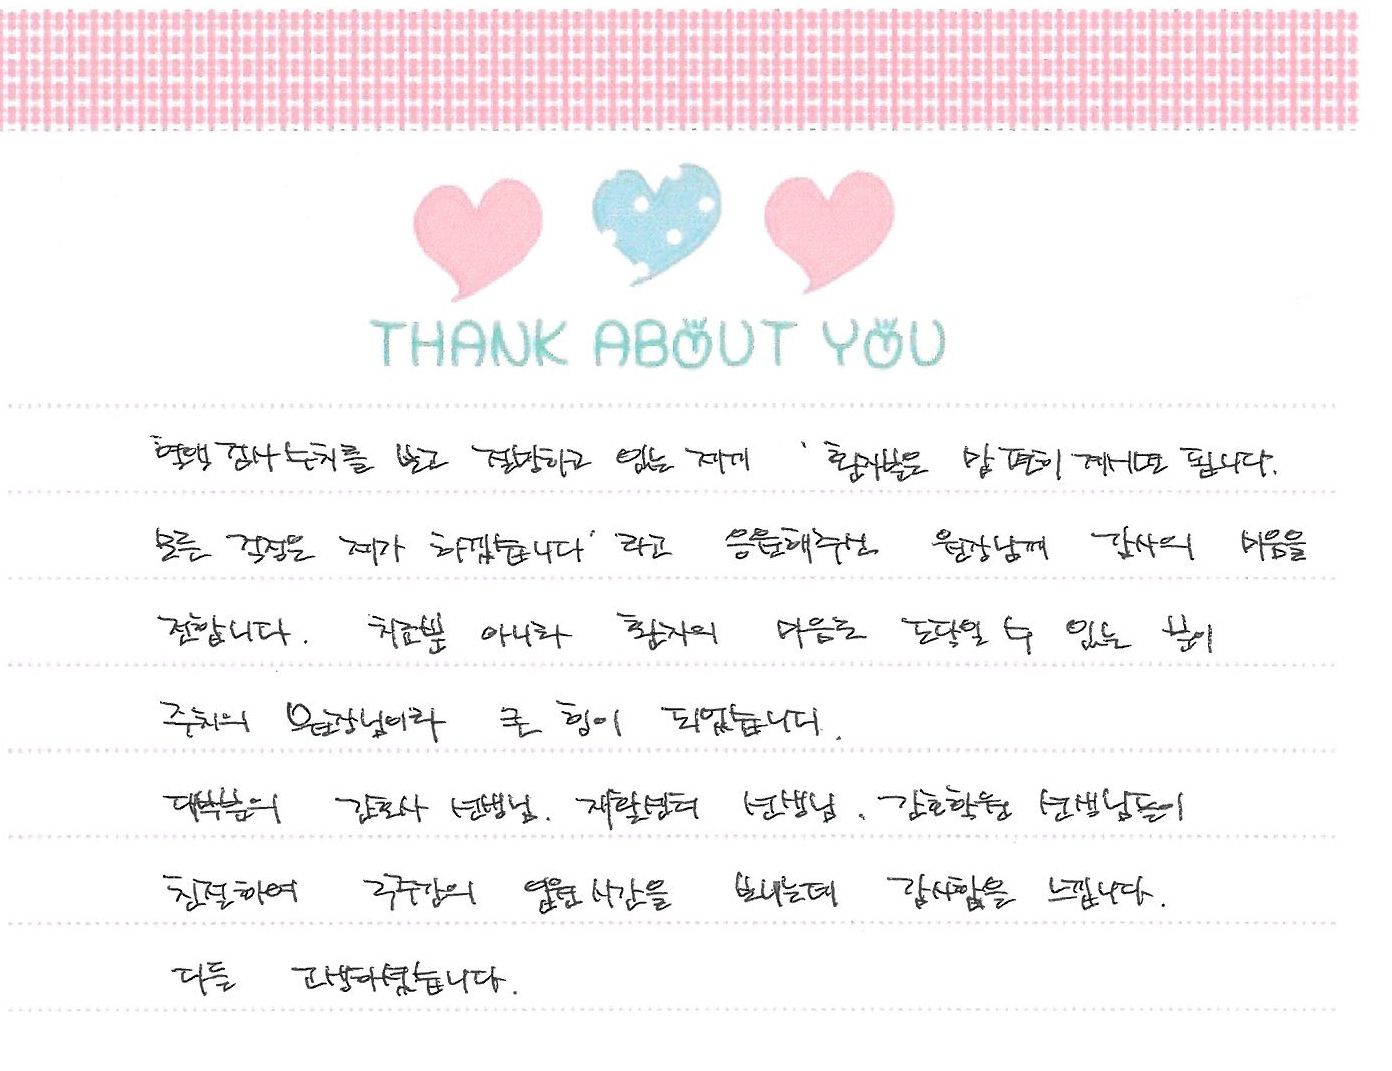 THANK ABOUT YOU
혈액 검사 수치를 보고 절망하고 있는 저에게 '환자분은 맘 편히 계시면 됩니다.
모든 걱정은 제가 하겠습니다' 라고 응원해주신 원장님께 감사의 마음을
전합니다. 치료뿐 아니라 환자의 마음도 도닥일 수 있는 분이
주치의 원장님이라 큰 힘이 되었습니다.
대부분의 간호사 선생님. 재활센터 선생님. 간호학원 선생님들이
친절하여 2주간의 입원 시간을 보내는데 감사함을 느낍니다.
다들 고생하셨습니다.